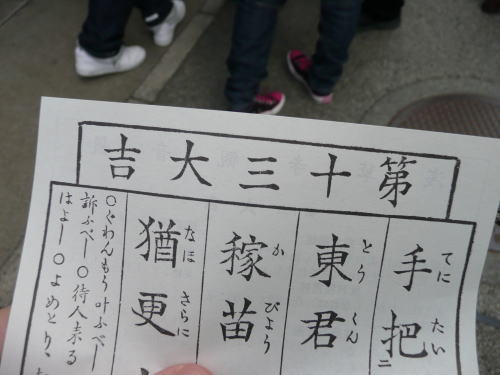 第十三大吉
手把
てに たい
二
東君
とう くん
稼苗
か びょう
猶更
なほ さらに
〇ぐわんもう叶ふべし
訴ふべし〇待人来る
はよし〇よめとり